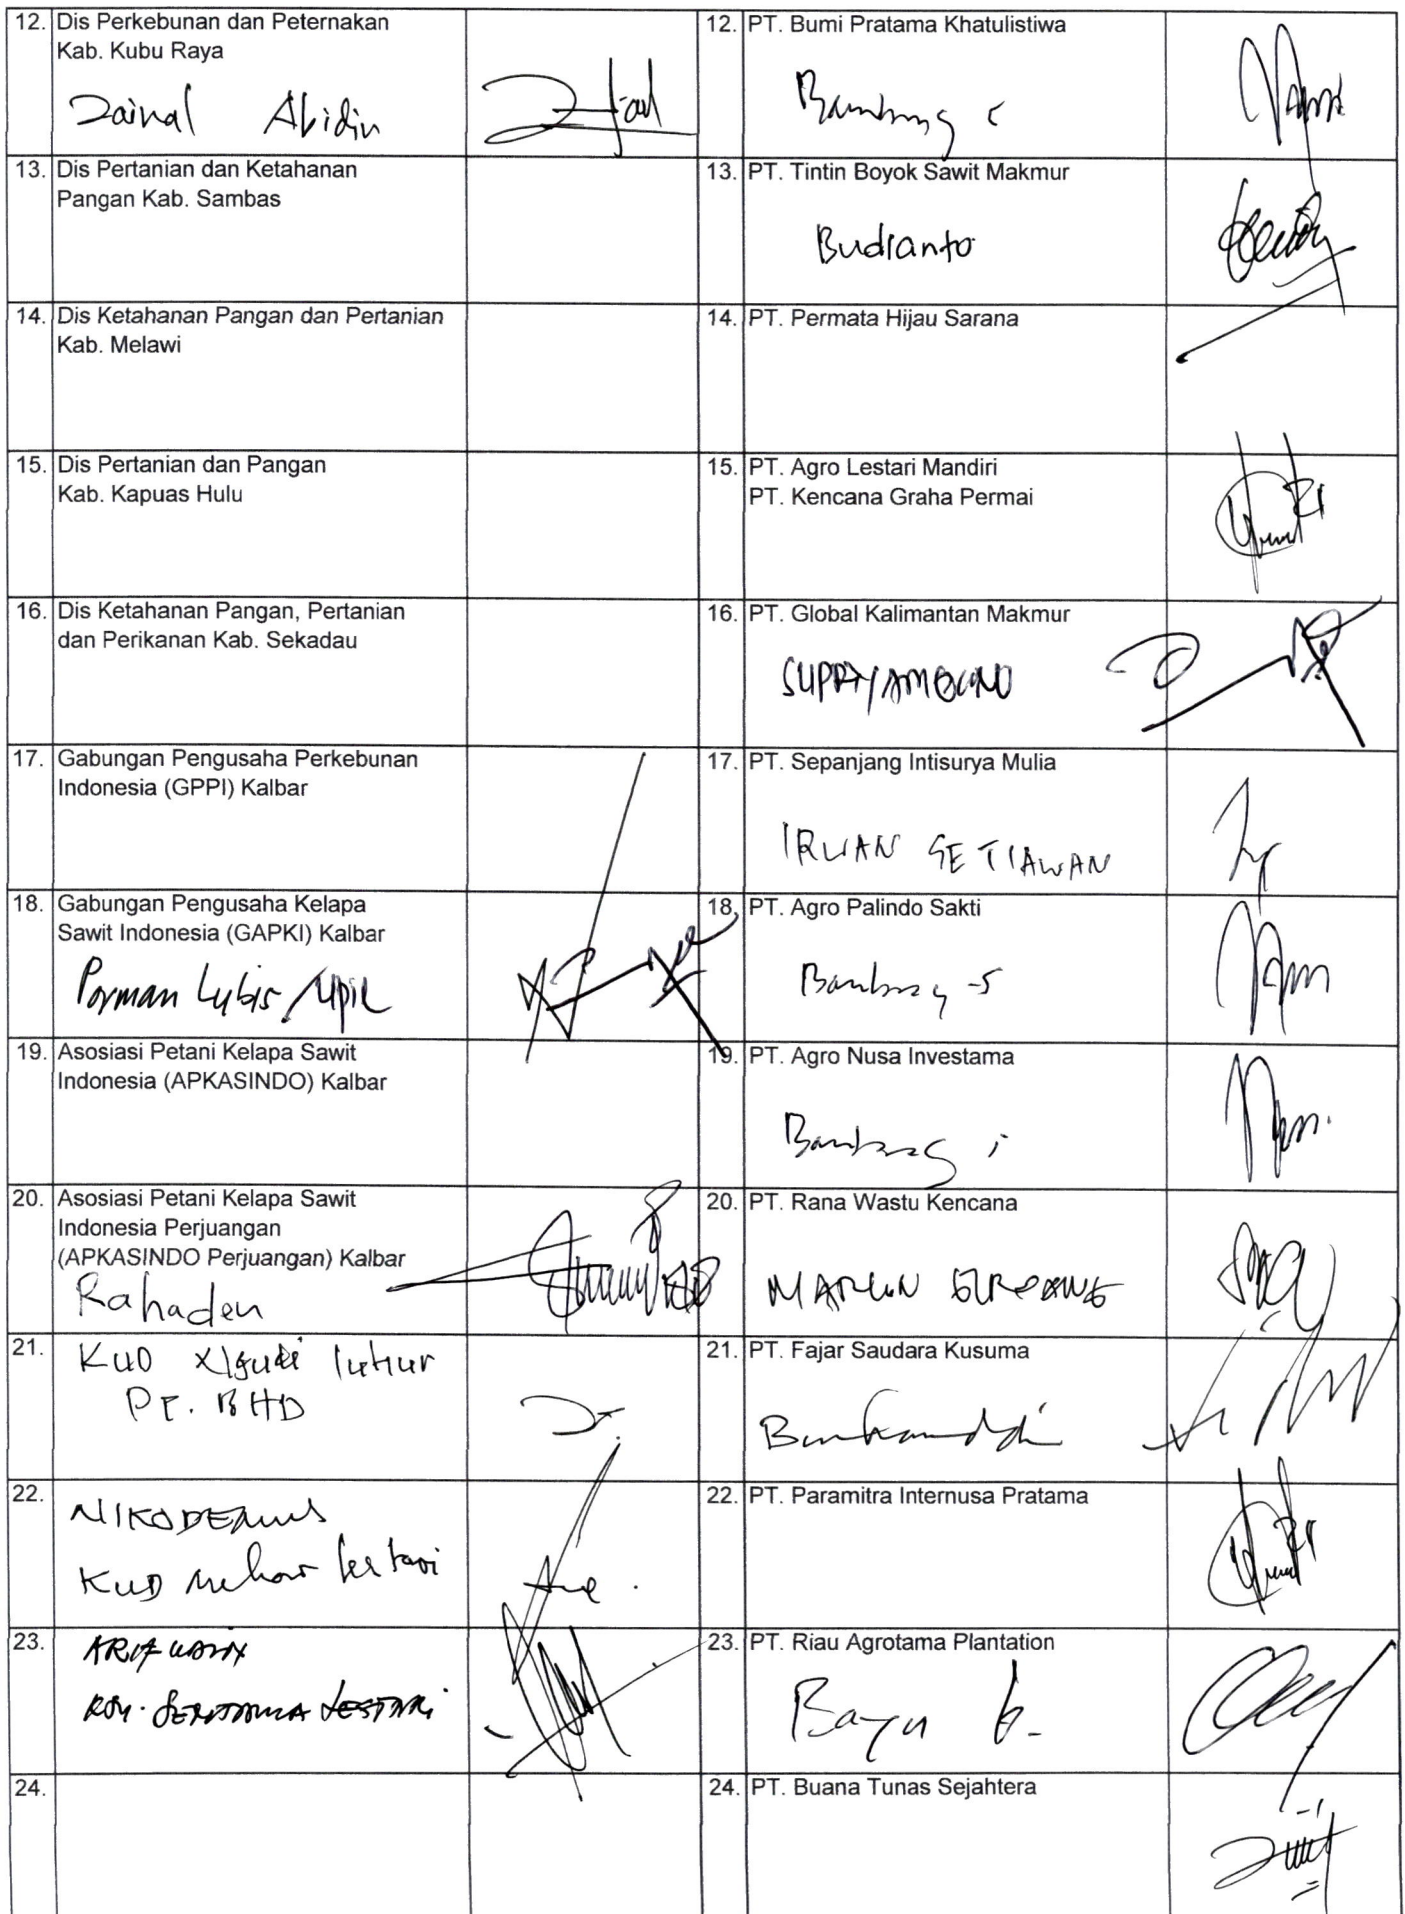 12. Dis Perkebunan dan Peternakan
Kab. Kubu Raya
Zainal Abidin
12. PT. Bumi Pratama Khatulistiwa
Bambang
13. Dis Pertanian dan Ketahanan
Pangan Kab. Sambas
13. PT. Tintin Boyok Sawit Makmur
Budianto
14. Dis Ketahanan Pangan dan Pertanian
Kab. Melawi
14. PT. Permata Hijau Sarana
15. Dis Pertanian dan Pangan
Kab. Kapuas Hulu
15. PT. Agro Lestari Mandiri
PT. Kencana Graha Permai
16. Dis Ketahanan Pangan, Pertanian
dan Perikanan Kab. Sekadau
16. PT. Global Kalimantan Makmur
17. Gabungan Pengusaha Perkebunan
Indonesia (GPPI) Kalbar
17. PT. Sepanjang Intisurya Mulia
IRWAN SETIAWAN
18. Gabungan Pengusaha Kelapa
Sawit Indonesia (GAPKI) Kalbar
Lubis
18. PT. Agro Palindo Sakti
Bambang S
19. Asosiasi Petani Kelapa Sawit
Indonesia (APKASINDO) Kalbar
19. PT. Agro Nusa Investama
Bambang
20. Asosiasi Petani Kelapa Sawit
Indonesia Perjuangan
(APKASINDO Perjuangan) Kalbar
Rahaden
20. PT. Rana Wastu Kencana
21. KUD luhur
PT. BHD
21. PT. Fajar Saudara Kusuma
22. NIKODEMUS
KUD lestari
22. PT. Paramitra Internusa Pratama
23. LESTARI
23. PT. Riau Agrotama Plantation
Bayu
24.
24. PT. Buana Tunas Sejahtera